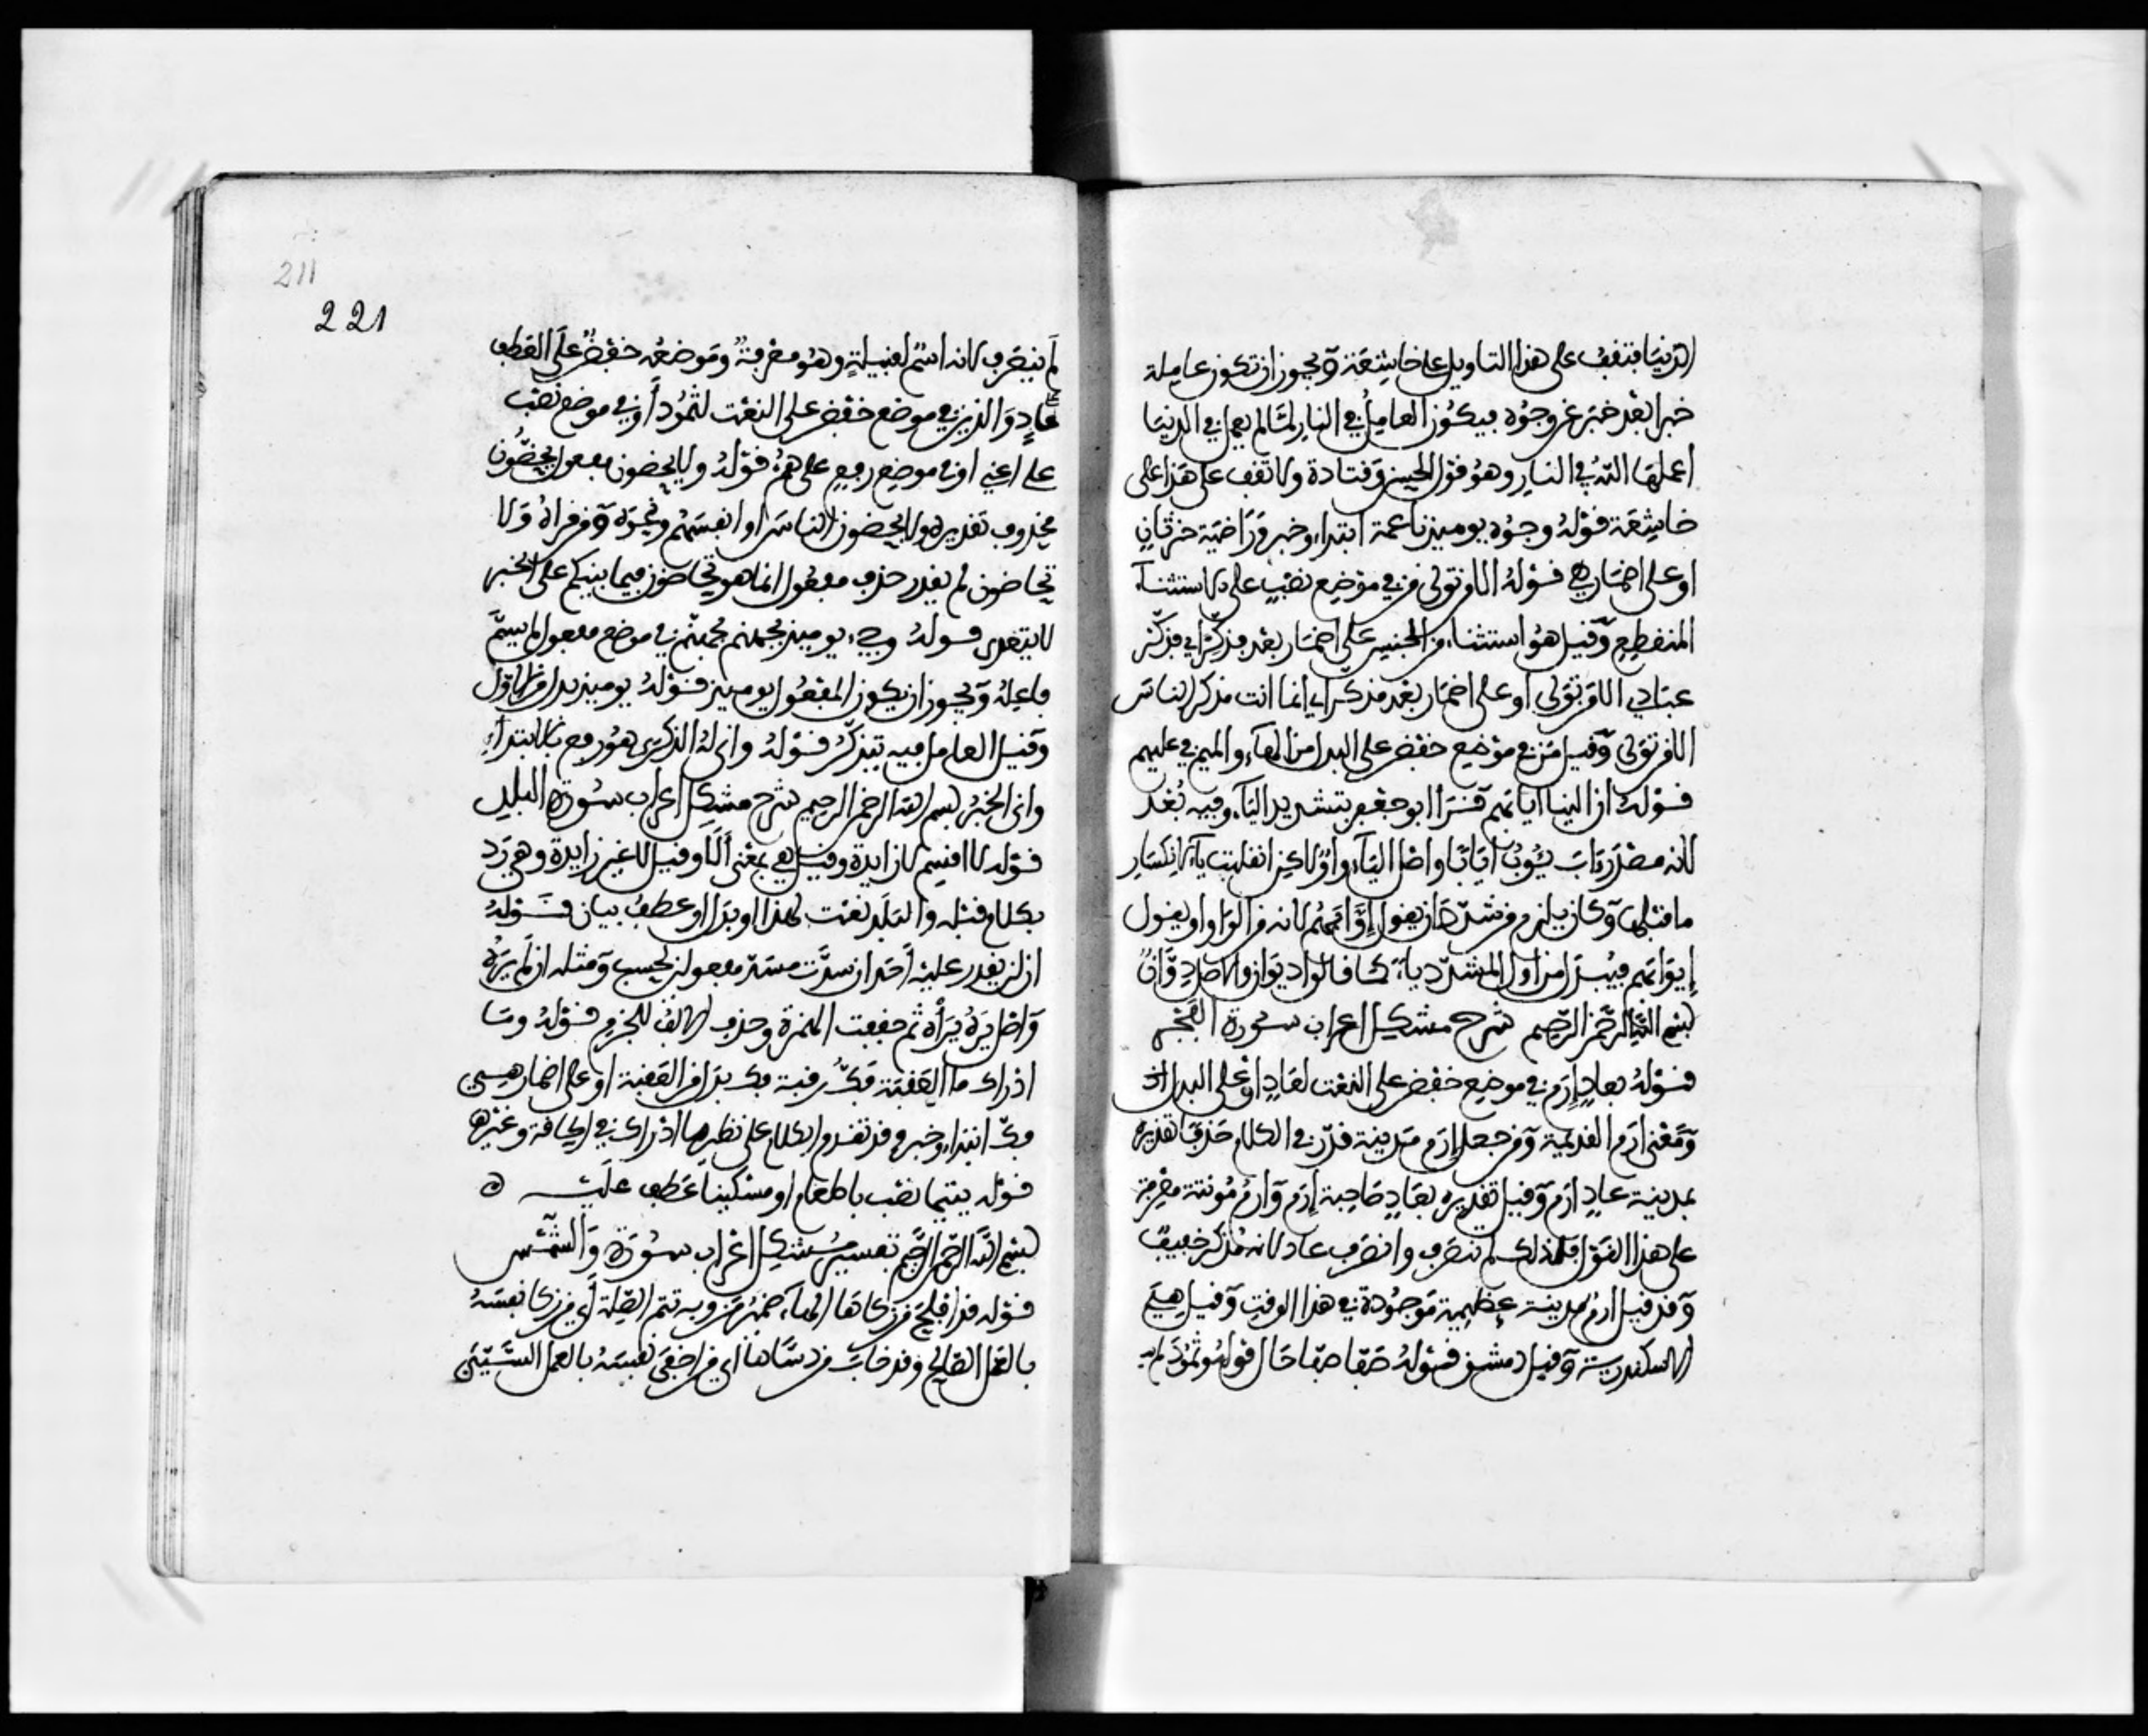 الدنيا فتقف على هذا التاويل على خاشعة ويجوز ان تكون عاملة
خبرا بعد خبر عن وجوه فيكون العامل في النار لما لم يعمل في الدنيا
اعملها الله في النار وهو قول الحسن وقتادة ولا تقف على هذا على
خاشعة قوله وجوه يوميذ ناعمة ابتداء وخبر وراضية خبر ثان
او على اضمار هي قوله الا من تولى من في موضع نصب على الاستثناء
المنقطع وقيل هو استثناء من الجنس على اضمار بعد فذكر اي فذكر
عبادي الا من تولى او على اضمار بعد مذكر اي انما انت مذكر الناس
الا من تولى وقيل من في موضع خفض على البدل من الهاء والميم في عليهم
قوله ان الينا ايابهم قرأ ابو جعفر بتشديد الياء وفيه بُعد
لانه مصدر ءاب يئوب ايابا واصل الياء واو لاكن انقلبت ياء لانكسار
ما قبلها وكان يلزم من شدد ان يقول إوّابهم لانه من الواو او يقول
إيوابهم فيبدل من اول المشدد ياء كما قالوا ديوان والاصل دِوّان
بسم الله الرحمن الرحيم شرح مشكل اعراب سورة الفجر
قوله بعادٍ إرم في موضع خفض على النعت لعادٍ او على البدل
ومعنى ارم القديمة ومن جعل إرم مدينة قدر في الكلام حذفا تقديره
بمدينة عادٍ ارم وقيل تقديره بعادٍ صاحبة إرم وارم مونثة معرفة
على هذا القول فلذلك لم تنصرف وانصرف عاد لانه مذكر خفيف
وقد قيل ارم مدينة عظيمة موجودة في هذا الوقت وقيل هي
الاسكندرية وقيل دمشق قوله صفا صفا حال قوله وثمود لم
211
221
لم ينصرف لانه اسم لقبيلةٍ وهو معرفة وموضعه خفض على العطف
على عادٍ والذين في موضع خفض على النعت لثمود او في موضع نصب
على اعني او في موضع رفع على هم قوله ولا يحضون مفعول يحضون
محذوف تقديره ولا يحضون الناس او انفسهم ونحوه ومن قراه ولا
تحاضون لم يقدر حذف مفعول انما هو تتحاضون فيما بينكم على الخبر
لا يتعدى قوله وجيء يوميذ بجهنم بجهنم في موضع مفعول لم يسم
فاعله ويجوز ان يكون المفعول يوميذ قوله يوميذ بدل من الاول
وقيل العامل فيه يتذكر قوله وانى له الذكرى هو رفع بالابتداء
وانى الخبر بسم الله الرحمن الرحيم شرح مشكل اعراب سورة البلد
قوله لا اقسم لا زايدة وقيل هي بمعنى أَلَا وقيل لا غير زايدة وهي رد
لكلام قبله والبلد نعت لهذا او بدل او عطف بيان قوله
ان لن يقدر عليه أحد ان سدت مسد مفعولي يحسب ومثله ان لم يره
واصل يره يرأه ثم خففت الهمزة وحذف الالف للجزم قوله وما
ادراك ما العقبة فكُّ رقبة فك بدل من العقبة او على اضمار هي
فك ابتداء وخبر وقد تقدم الكلام على نظير ما ادراك في الحاقة وغيرها
قوله يتيما نصب باطعام او مسكينا عطف عليه
بسم الله الرحمن الرحيم تفسير مشكل اعراب سورة والشمس
قوله قد افلح من زكاها الهاء ضمير من وبه تتم الصلة أي من زكا نفسه
بالعمل الصالح وقد خاب من دساها اي من اخفى نفسه بالعمل السيئ